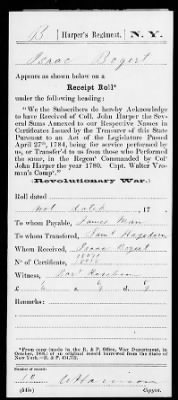 B | Harper's Regiment, | N. Y.
Isaac Bogert
Appears as shown below on a
Receipt Roll*
under the following heading:
"We the Subscribers do hereby Acknowledge
to have Received of Coll. John Harper the Sev-
eral Sums Annexed to our Respective Names in
Certificates Issued by the Treasurer of this State
Pursuant to an Act of the Legislature Passed
April 27th, 1784, being for service performed by
us, or Transfer'd to us from those who Performed
the same, in the Regemt Commanded by Colo
John Harper the year 1780. Capt. Walter Vro-
man's Compy."
(Revolutionary War.)
Roll dated
not dated, 17
To whom Payable, James Man
To whom Transfered, Saml Hagedorn
Whom Received, Isaac Bogert
No of Certificate,
Witness,
£
Remarks:
*From copy made in the R. & P. Office, War Department, in
State of New York.—R. & P.
Number of record:
Copyist.